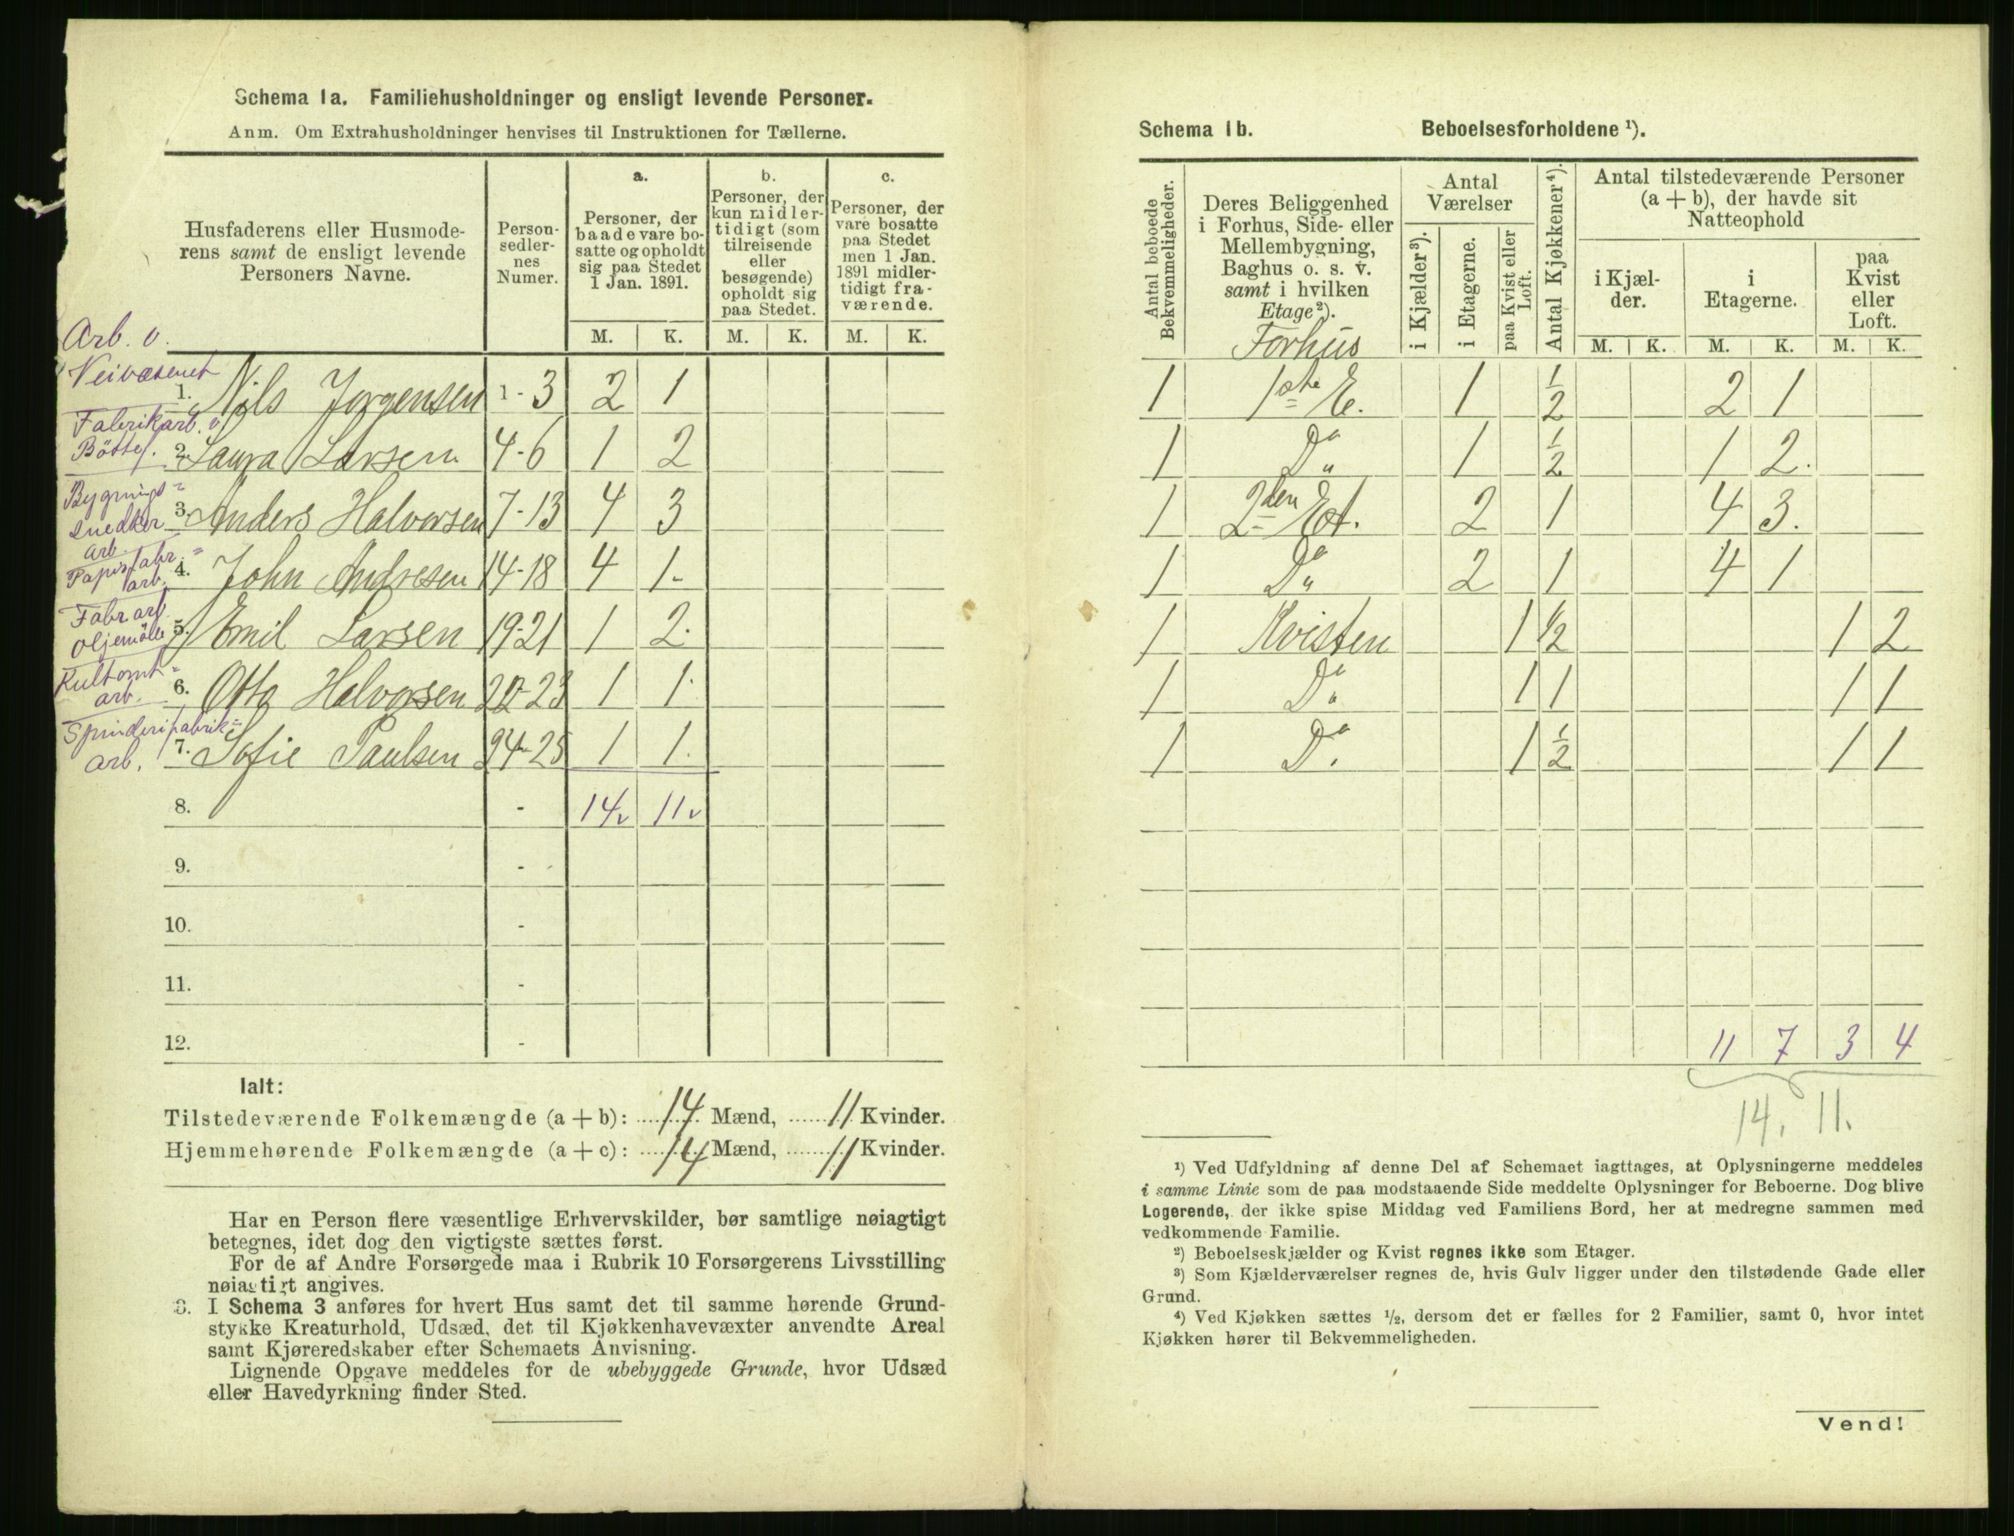 Schema 1a. Familiehusholdninger og ensligt levende Personer.
Anm. Om Extrahusholdninger henvises til Instruktionen for Tællerne.
Husfaderens eller Husmoderens samt de ensligt levende Personers Navne.
Personsedlernes Numer.
a. Personer, der baade vare bosatte og opholdt sig paa Stedet 1 Jan. 1891.
b. Personer, der kun midlertidigt (som tilreisende eller besøgende) opholdt sig paa Stedet.
c. Personer, der vare bosatte paa Stedet men 1 Jan. 1891 midlertidigt fraværende.
M. K. M. K. M. K.
Arb. v. Veivæsenet
1. Nils Jørgensen 1 - 3 2 1
Fabrikarb. v. Böttef.
2. Laura Larsen 4-6 1 2
Bygnings= snedker arb.
3. Anders Halvorsen 7-13 4 3
Papirfabr.= arb.
4. John Andresen 14-18 4 1-
Fabr arb. Oljemölle
5. Emil Larsen 19-21 1 2.
arb.
6. Otto Halvorsen 22-23 1 1.
Spinderifabrik= arb.
7. Sofie Paulsen 24-25 1 1.
8. - 14v 11v
9. -
10. -
11. -
12. -
Ialt:
Tilstedeværende Folkemængde (a + b): 14 Mænd, 11 Kvinder.
Hjemmehørende Folkemængde (a + c): 14 Mænd, 11 Kvinder.
Har en Person flere væsentlige Erhvervskilder, bør samtlige nøiagtigt
betegnes, idet dog den vigtigste sættes først.
For de af Andre Forsørgede maa i Rubrik 10 Forsørgerens Livsstilling
nøiagtigt angives.
3. I Schema 3 anføres for hvert Hus samt det til samme hørende Grund-
stykke Kreaturhold, Udsæd, det til Kjøkkenhavevæxter anvendte Areal
samt Kjøreredskaber efter Schemaets Anvisning.
Lignende Opgave meddeles for de ubebyggede Grunde, hvor Udsæd
eller Havedyrkning finder Sted.
Schema 1b. Beboelsesforholdene ¹).
Antal beboede Bekvemmeligheder.
Deres Beliggenhed i Forhus, Side- eller Mellembygning, Baghus o. s. v. samt i hvilken Etage²).
Antal Værelser
i Kjælder³).
i Etagerne.
paa Kvist eller Loft.
Antal Kjøkkener⁴).
Antal tilstedeværende Personer (a + b), der havde sit Natteophold
i Kjælder.
i Etagerne.
paa Kvist eller Loft.
M. K. M. K. M. K.
Forhus
1 1ste E. 1 1/2 2 1
1 Do 1 1/2 1 2.
1 2den Et. 2 1 4 3.
1 Do 2 1 4 1
1 Kvisten 1 1/2 1 2
1 Do 1 1 1 1
1 Do 1 1/2 1 1
11 7 3 4
14. 11.
¹) Ved Udfyldning af denne Del af Schemaet iagttages, at Oplysningerne meddeles
i samme Linie som de paa modstaaende Side meddelte Oplysninger for Beboerne. Dog blive
Logerende, der ikke spise Middag ved Familiens Bord, her at medregne sammen med
vedkommende Familie.
²) Beboelseskjælder og Kvist regnes ikke som Etager.
³) Som Kjælderværelser regnes de, hvis Gulv ligger under den tilstødende Gade eller
Grund.
⁴) Ved Kjøkken sættes ½, dersom det er fælles for 2 Familier, samt 0, hvor intet
Kjøkken hører til Bekvemmeligheden.
Vend!